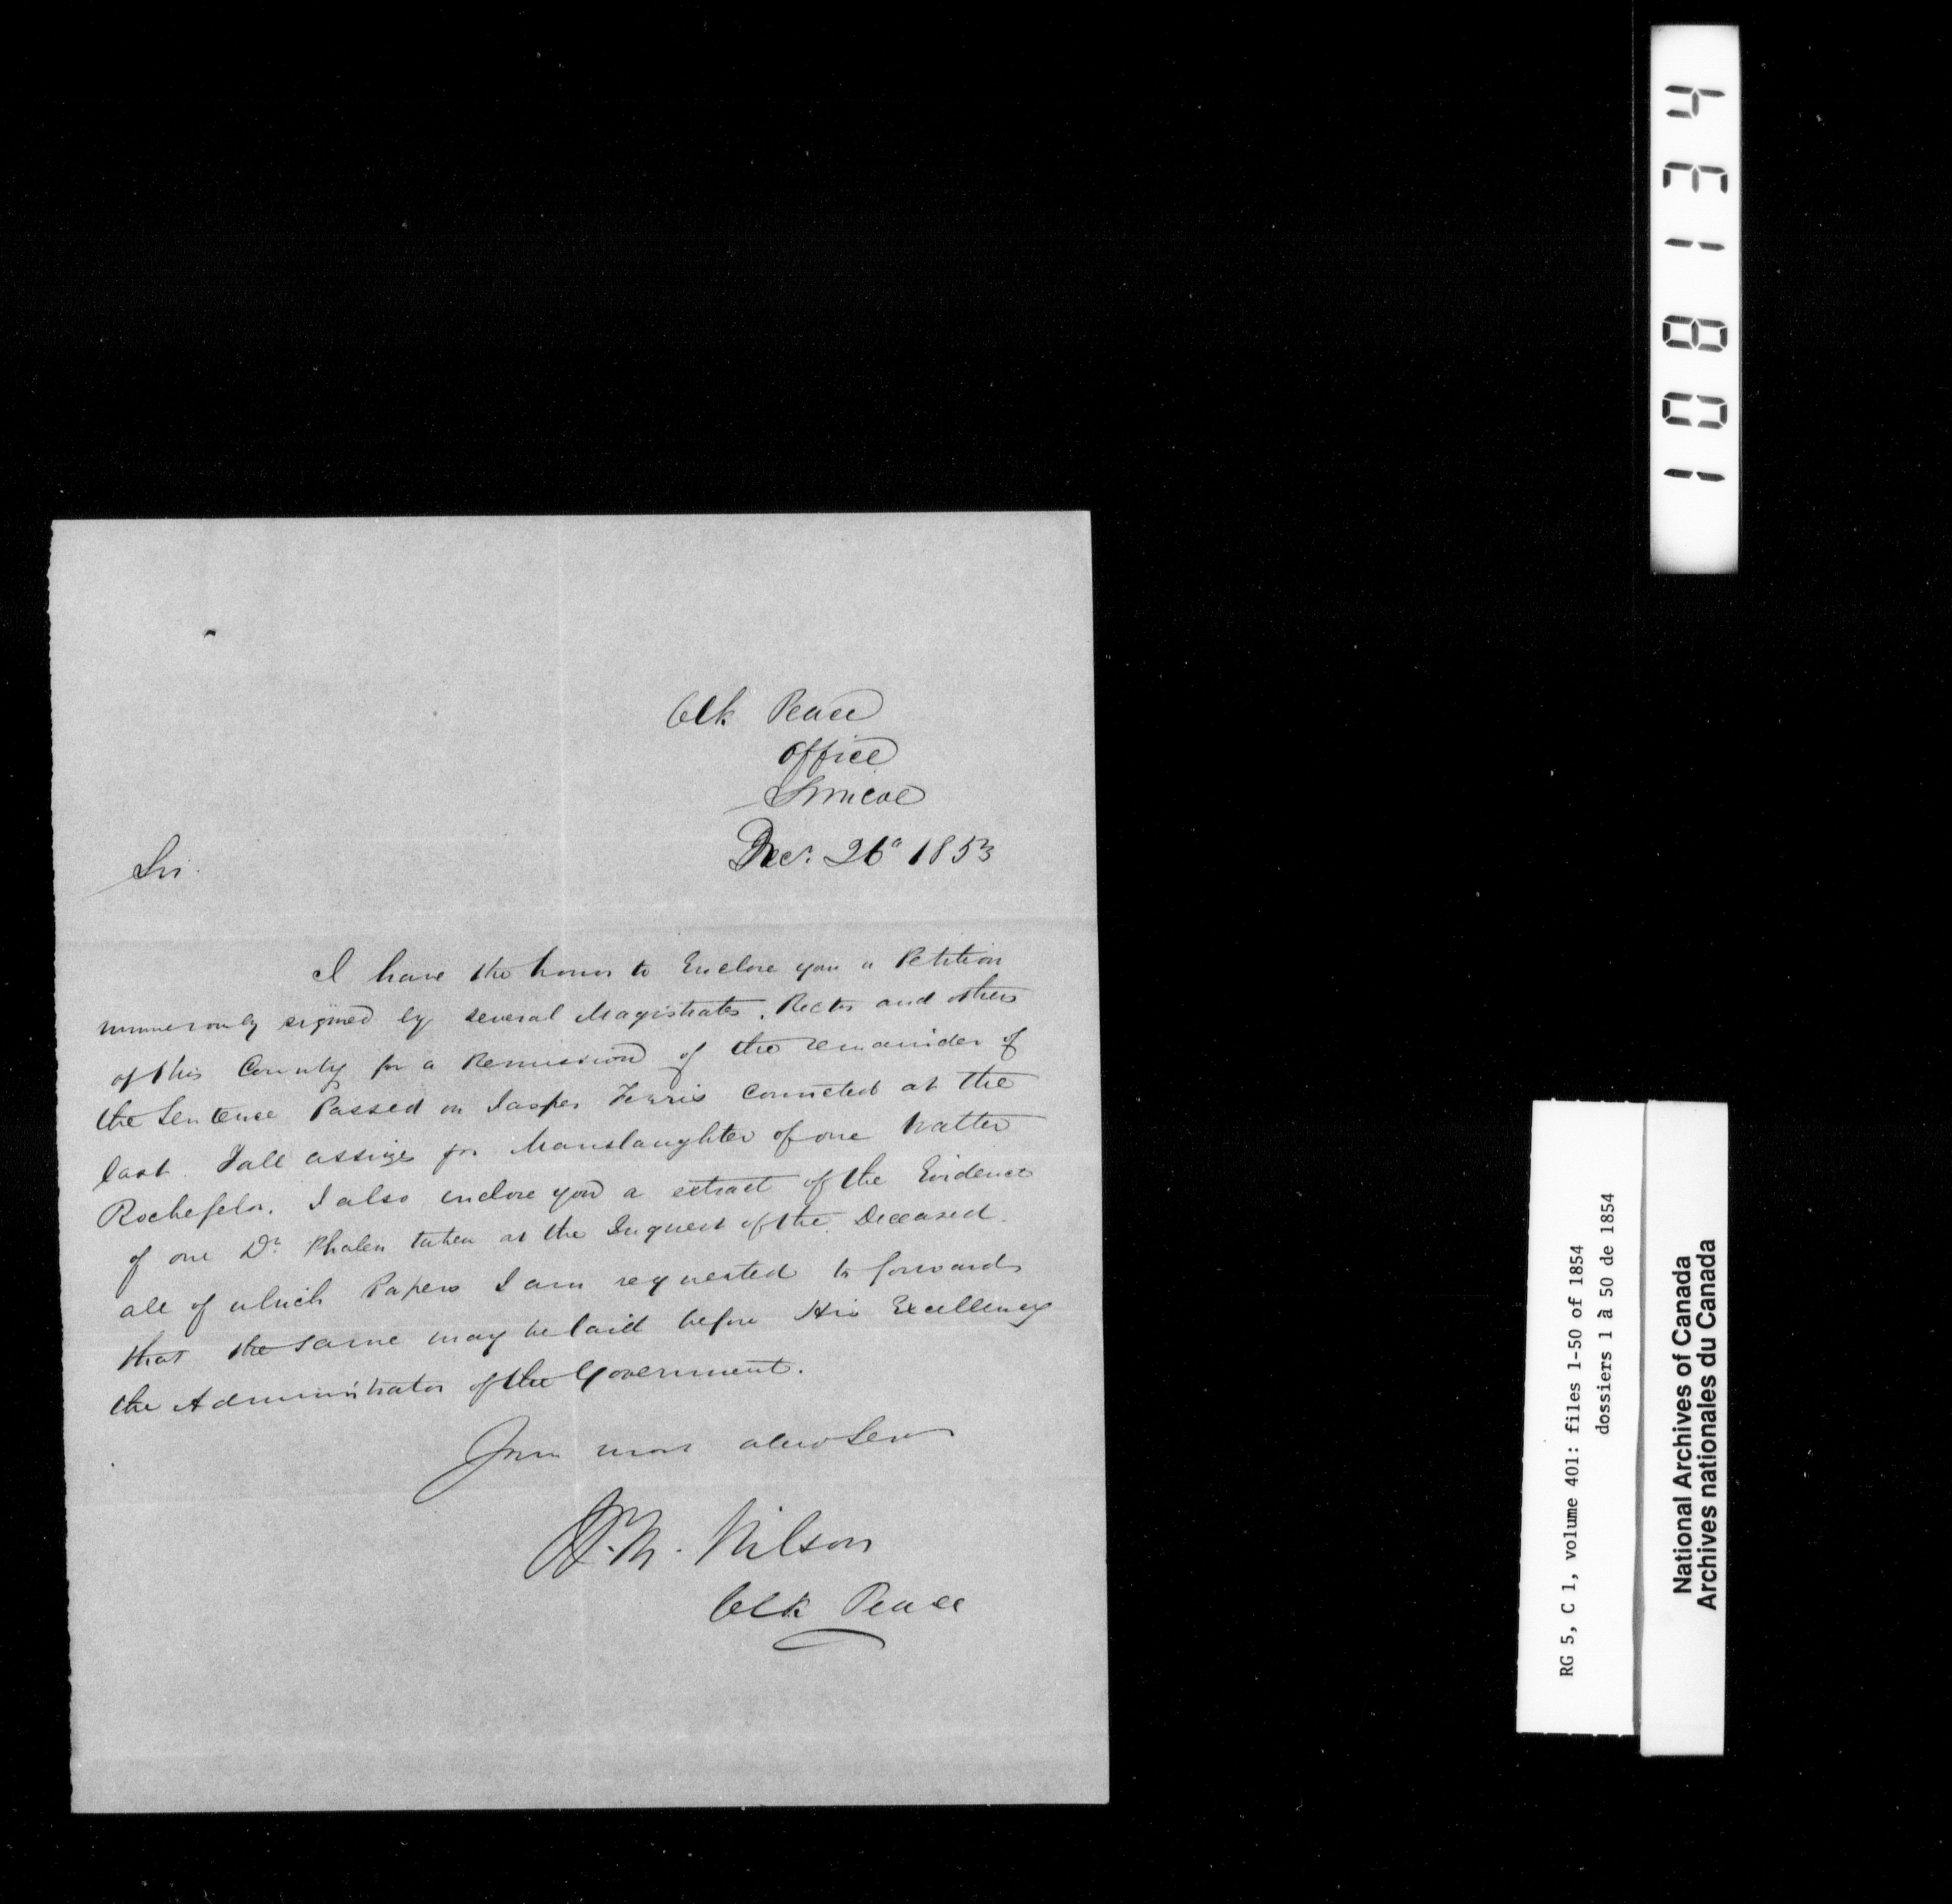 Clk Peace
Office
Simcoe
Decr. 26th 1853
Sir.
I have the honor to Enclose you a Petition
numerously signed by several Magistrates, Rector and others
of this County for a Remission of the remainder of
the Sentence Passed on Jasper Ferris convicted at the
last Fall assizes for Manslaughter of one Walter
I also enclose you a extract of the Evidence
of one Dr. Phalen taken at the Inquest of the Deceased.
all of which Papers I am requested to forward
that the same may be laid before His Excellency
the Administrator of the Government.
Your most
Wilson
Clk Peace
108134
RG 5, C 1, volume 401: files 1-50 of 1854
dossiers 1 à 50 de 1854
National Archives of Canada
Archives nationales du Canada